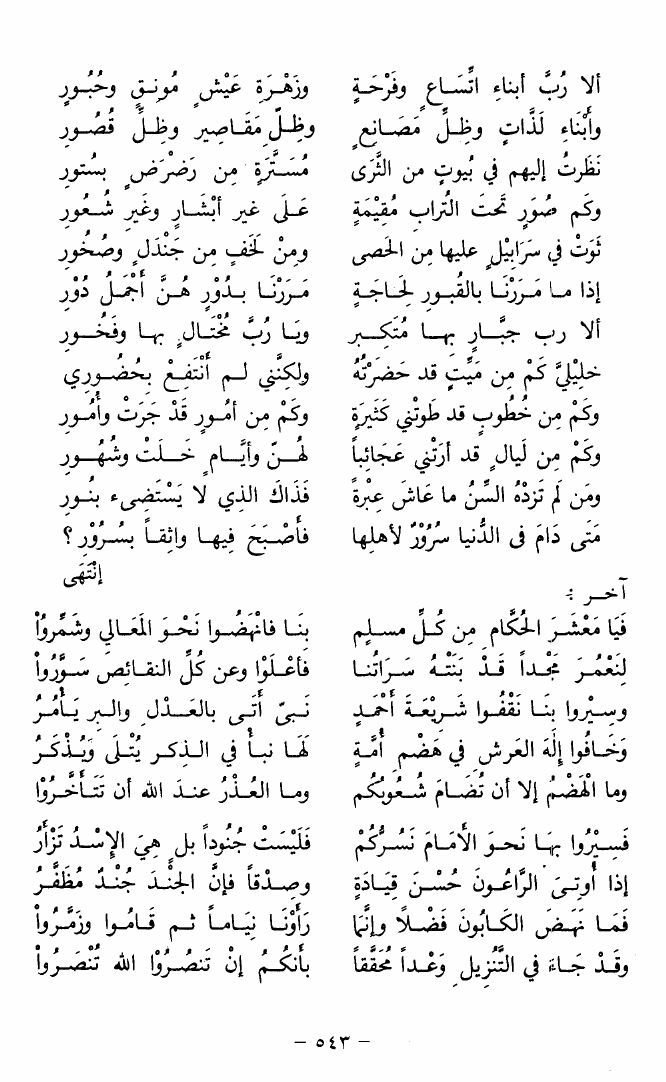 ألا رُبَّ أبناءِ اتِّسَاعٍ وفَرْحَةٍ وزَهْرَةِ عَيْشٍ مُونِقٍ وحُبُورِ
وأَبْنَاءِ لَذَّاتٍ وظِلِّ مَصَانِعٍ وظِلِّ مَقَاصِيرٍ وظِلِّ قُصُورِ
نَظَرتُ إليهم في بُيوتٍ من الثَّرَى مُسَتَّرَةٍ من رَضْرَضٍ بسُتورِ
وكم صُوَرٍ تَحتَ التُرابِ مُقِيْمَةٍ عَلَى غيرِ أبْشَارٍ وغَيرِ شُعُورِ
ثَوَتْ في سَرَابِيْلٍ عليها مِن الحَصى ومِنْ لَخَفٍ من جَنْدَلٍ وصُخُورِ
إذا ما مَرَرْنَا بالقُبورِ لِحَاجَةٍ مَرَرْنَا بدُوْرٍ هُنَّ أَجْمَلُ دُوْرِ
ألا رب جبَّارٍ بها مُتَكبرٍ ويَا رُبَّ مُخْتَالٍ بها وفَخُورِ
خليْليَّ كَمْ مِن مَيِّتٍ قد حَضَرْتُهُ ولكِنَّني لم أَنْتَفِعْ بحُضُوري
وكَمْ مِن خُطُوبٍ قد طَوَتْني كَثيرَةٍ وكَمْ من أمُورٍ قَدْ جَرَتْ وأُمُورِ
وكَمْ مِن لَيالٍ قد أرَتْني عَجَائِباً لهُنَّ وأيَّامٍ خَلَتْ وشُهُورِ
ومَن لم تَزدْهُ السِّنُ ما عَاشَ عِبْرَةً فَذَاكَ الذي لا يَسْتَضيءُ بنُورِ
مَتَى دَامَ في الدُّنيا سُرُوْرٌ لأهلِها فأَصْبَحَ فيها واثِقاً بسُرُوْرِ ؟
إنْتَهَى
آخر :
فَيَا مَعْشَرَ الحُكَّامِ مِن كُلِّ مسلِمٍ بنَا فانْهَضُوا نَحْوَ المَعَالي وشَمِّرُواْ
لِنَعْمُرَ مَجْداً قَدْ بَنَتْهُ سَرَاتُنَا فأعْلَوْا وعن كُلِّ النقائِصِ سَوَّرُواْ
وسِيْروا بنَا نَقْفُوا شَرِيْعَةَ أَحْمَدٍ نَبيٌّ أَتَى بالعَدْلِ والبِرِ يَأْمُرُ
وَخَافُوا إلهَ العَرشِ في هَضْمِ أُمَّةٍ لَهَا نبأٌ في الذِكرِ يُتْلَى ويُذْكَرُ
وما الهَضْمُ إلا أن تُضَامَ شُعُوبكُم وما العُذْرُ عندَ اللهِ أن تَتَأخَّرُواْ
فَسِيْرُوا بهَا نَحوَ الأَمَامِ نَسُرُّكُمْ فَلَيْسَتْ جُنُوداً بل هِيَ الإِسْدُ تَزْأَرُ
إذا أُوتِيَ الرَّاعُونَ حُسْنَ قِيَادَةٍ وصِدْقاً فإنَّ الجُنْدَ جُنْدٌ مُظَفَّرُ
فَمَا نَهَضَ الكَابُونَ فَضْلاً وإنَّمَا رَأَوْنَا نِيَاماً ثم قَامُوا وزَمَّرُواْ
وقَدْ جَاءَ في التَّنْزِيلِ وَعْداً مُحَقَّقاً بأنكُم إنْ تَنصُرُوْا الله تُنْصَرُواْ
- ٥٤٣ -